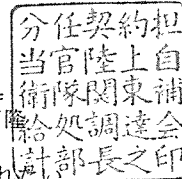 分任契約担
当官陸上自
衛隊関東補
給処調達会
計部長之印